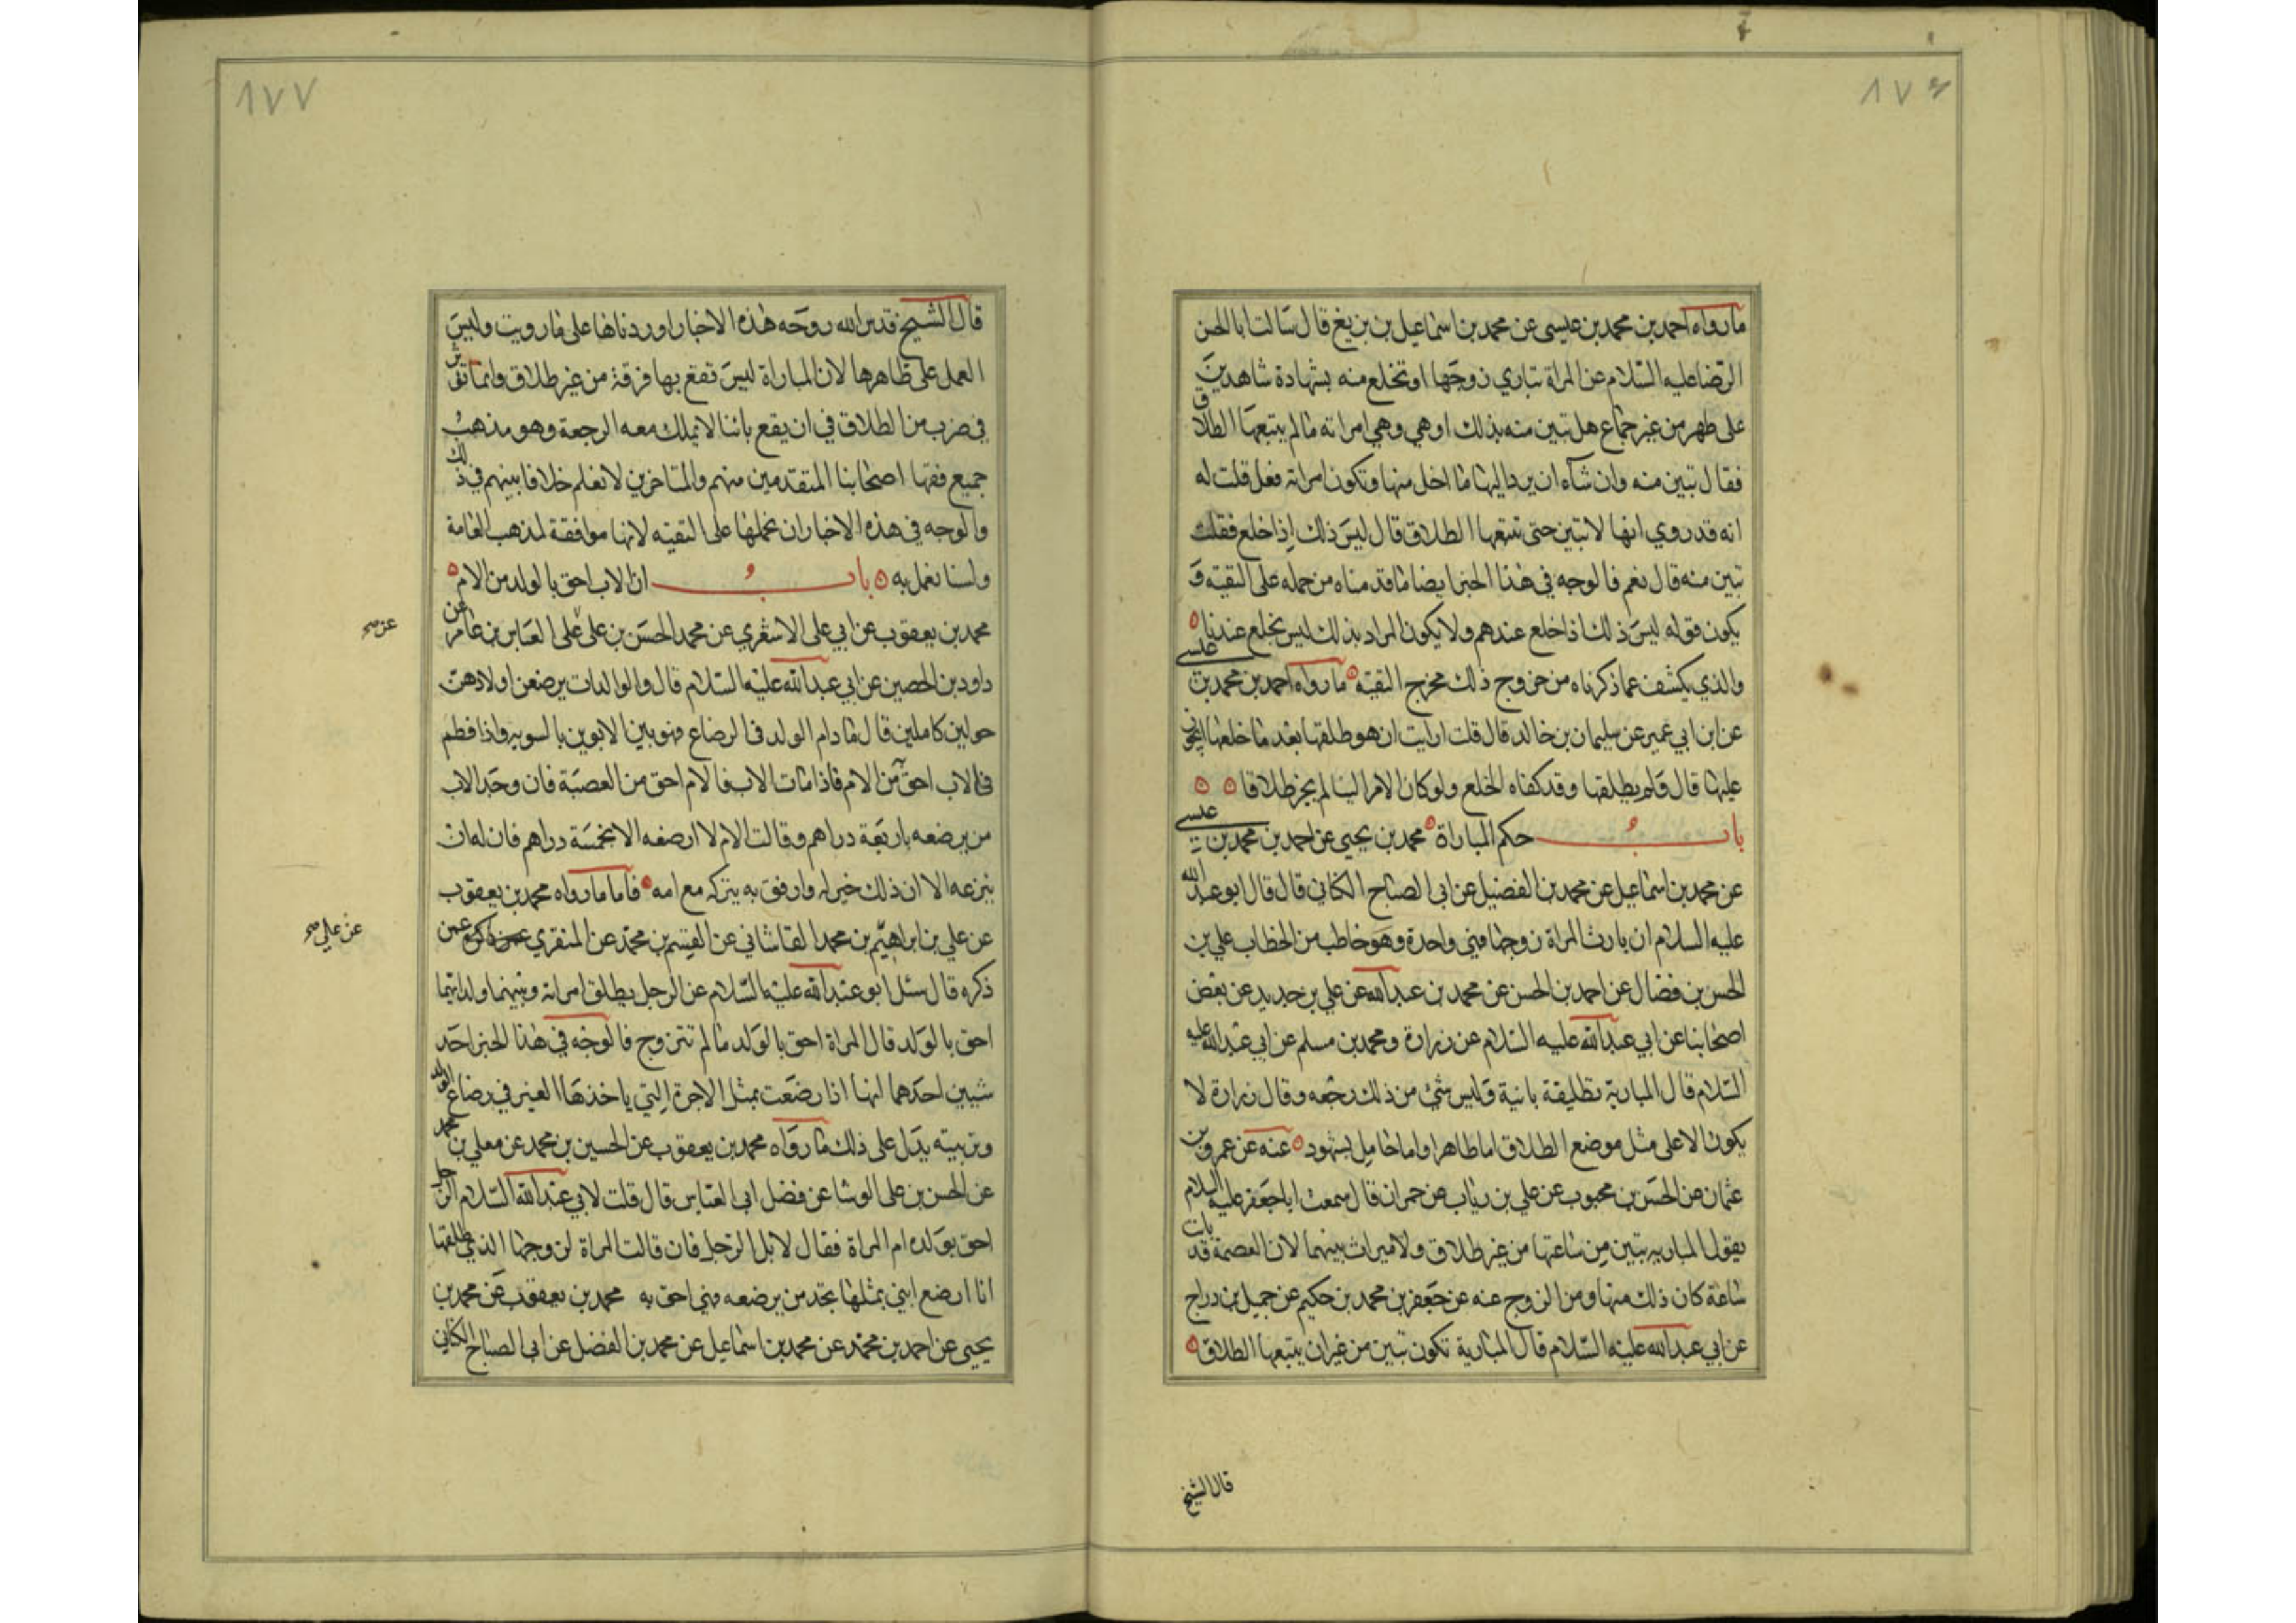 ١٧٦
ما رواه احمد بن محمد بن عيسى عن محمد بن اسماعيل بن بزيغ قال سالت ابا الحسن
الرضا عليه السلام عن المراة تباري زوجها او تختلع منه بشهادة شاهدين
على طهر من غير جماع هل تبين منه بذلك او هي وهي امراته ما لم يتبعها الطلاق
فقال تبين منه وان شاء ان يرد اليها ما اخذ منها وتكون امراته فعل قلت له
انه قد روي انها لا تبين حتى يتبعها الطلاق قال ليس ذلك اذا خلع فقلت
تبين منه قال نعم فالوجه في هذا الخبر ايضا ما قدمناه من حمله على التقية و
يكون قوله ليس ذلك اذا خلع عندهم ولا يكون المراد بذلك ليس بخلع عندنا
والذي يكشف عما ذكرناه من خروج ذلك مخرج التقية ما رواه احمد بن محمد بن عيسى
عن ابن ابي عمير عن سليمان بن خالد قال قلت ارايت ان هو طلقها بعد ما خلعها ايجوز
عليها قال فلم يطلقها وقد كفاه الخلع ولو كان الامر الينا لم نجز طلاقا
باب حكم المباراة محمد بن يحيى عن احمد بن محمد بن عيسى
عن محمد بن اسماعيل عن محمد بن الفضيل عن ابي الصباح الكناني قال قال ابو عبد الله
عليه السلام ان بارت المراة زوجها فهي واحدة وهو خاطب من الخطاب علي بن
الحسن بن فضال عن احمد بن الحسن عن محمد بن عبد الله عن علي بن حديد عن بعض
اصحابنا عن ابي عبد الله عليه السلام عن زرارة ومحمد بن مسلم عن ابي عبد الله عليه
السلام قال المبارية تطليقة بانية وليس شئ من ذلك رجعه وقال زرارة لا
يكون الا على مثل موضع الطلاق اما طاهرا واما حامل بشهود عنه عن عمرو بن
عثمان عن الحسن بن محبوب عن علي بن رياب عن حمران قال سمعت ابا جعفر عليه السلام
يقول المباريه تبين من ساعتها من غير طلاق ولا ميراث بينهما لان العصمة قد بانت
ساعة كان ذلك منها ومن الزوج عنه عن جعفر بن محمد بن حكيم عن جميل بن دراج
عن ابي عبد الله عليه السلام قال المبارية تكون تبين من غير ان يتبعها الطلاق
قال الشيخ
١٧٧
قال الشيخ قدس الله روحه هذه الاخبار اوردناها على ما رويت وليس
العمل على ظاهرها لان المباراة ليس تقع بها فرقة من غير طلاق وانما تؤثر
في ضرب من الطلاق في ان يقع بائنا لا يملك معه الرجعة وهو مذهب
جميع فقها اصحابنا المتقدمين منهم والمتاخرين لا نعلم خلافا بينهم في ذلك
والوجه في هذه الاخبار ان نحملها على التقية لانها موافقة لمذهب العامة
ولسنا نعمل به باب ان الاب احق بالولد من الام
محمد بن يعقوب عن ابي على الاشعري عن محمد الحسن بن على على العباس بن عامر عن
عن صح
داود بن الحصين عن ابي عبد الله عليه السلام قال والوالدات يرضعن اولادهن
حولين كاملين قال ما دام الولد فى الرضاع فهو بين الابوين بالسويه واذا فطم
فالاب احق من الام فاذا مات الاب فالام احق من العصبة فان وجد الاب
من يرضعه باربعة دراهم وقالت الام لا ارضعه الا بخمسة دراهم فان له ان
ينزعه الا ان ذلك خير له وارفق به يتركه مع امه فاما ما رواه محمد بن يعقوب
عن علي بن ابراهيم بن محمد القاشاني عن القسم بن محمد عن المنقري عمن
عن علي صح
ذكره قال سئل ابو عبد الله عليه السلام عن الرجل يطلق امراته وبينهما ولد ايهما
احق بالولد قال المراة احق بالولد ما لم تتزوج فالوجه في هذا الخبر احد
شيئين احدهما انها اذا رضعت بمثل الاجرة التي ياخذها الغير في رضاع الولد
وتربيته يدل على ذلك ما رواه محمد بن يعقوب عن الحسين بن محمد عن معلى بن محمد
عن الحسن بن على الوشا عن فضل ابى العباس قال قلت لابي عبد الله السلام الرجل
احق بولده ام المراة فقال لا بل الرجل فان قالت المراة لزوجها الذي طلقها
انا ارضع ابني بمثل ما تجد من يرضعه فهي احق به محمد بن يعقوب عن محمد بن
يحيى عن احمد بن محمد عن محمد بن اسماعيل عن محمد بن الفضل عن ابى الصباح الكناني